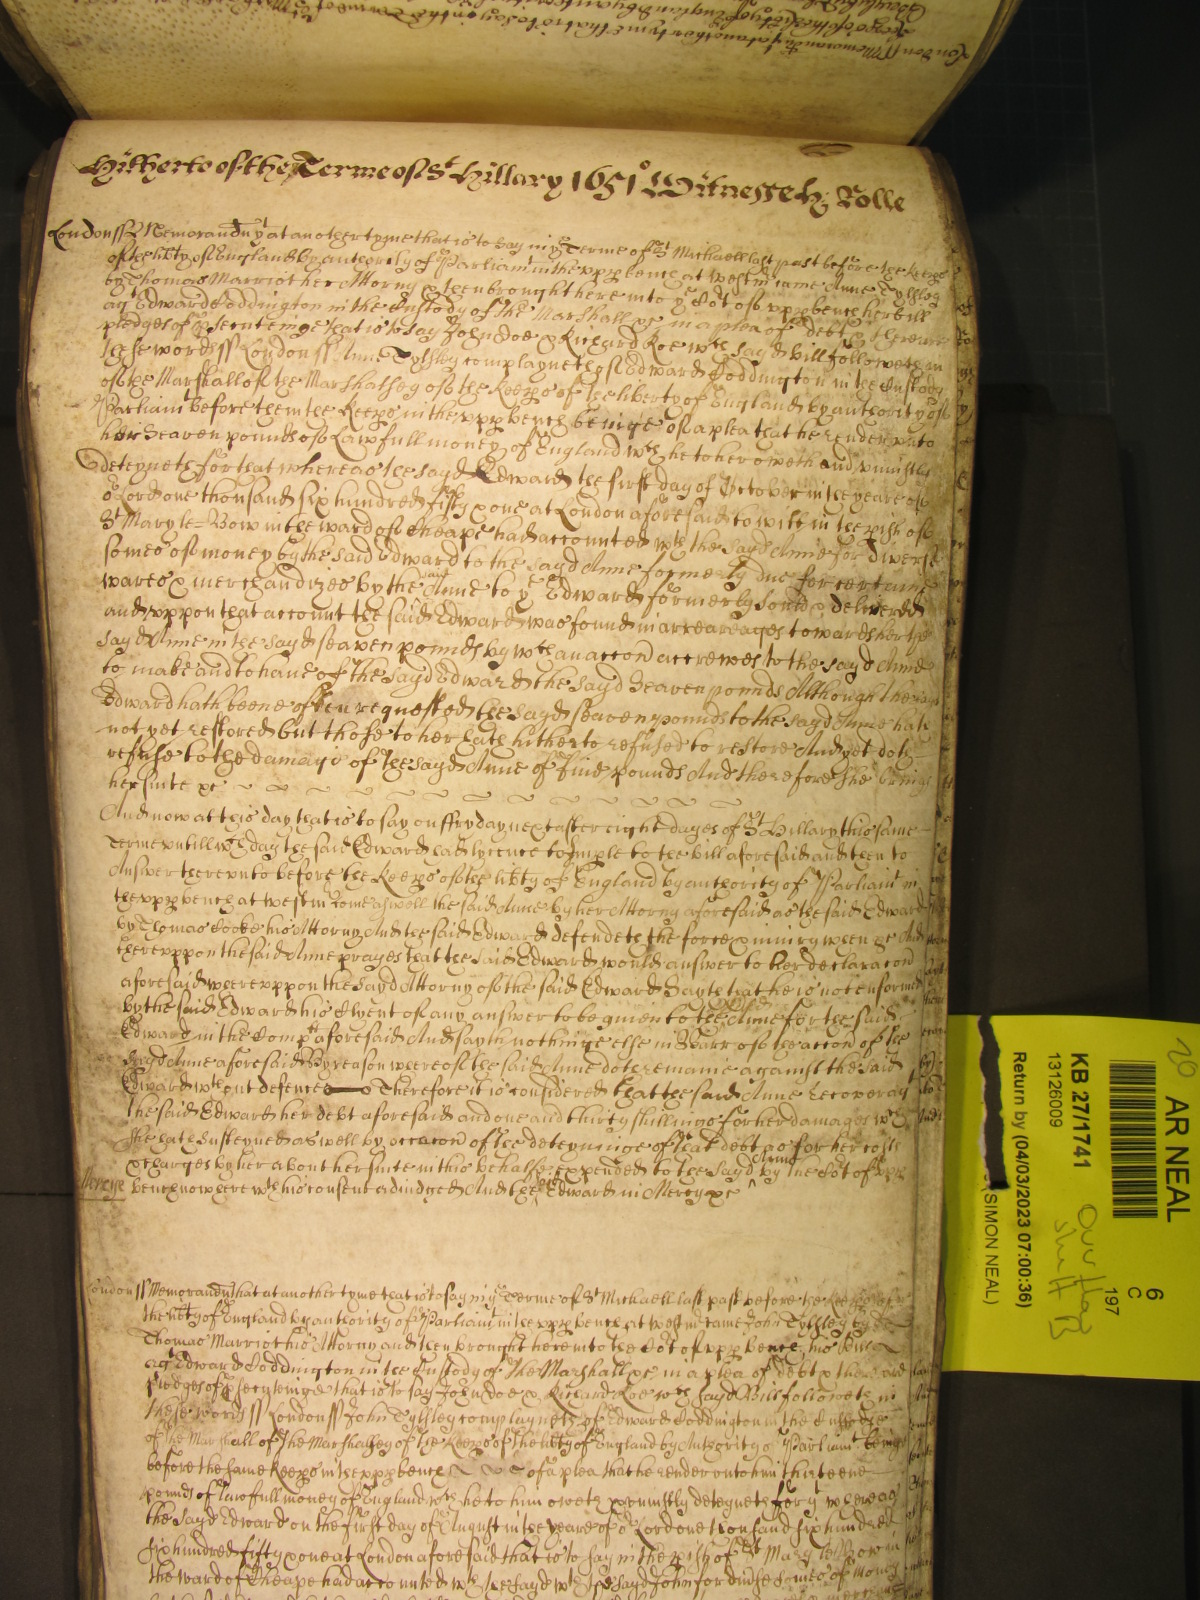 Hitherto of the Terme of St Hillary 1651 Witnesseth Rolle
London ss Memorand yt at another tyme that is to say in ye Terme of St Michaell last past before the Keeps
of the libty of England by authority of Parliamt in the upp bench at Westm came Anne Tylsley
by Thomas Marriot her Attorny & then brought here into ye Cot of upp bench her bill
agt Edward Coddington in the Custody of the Marshall &c in a plea of debt & there are
pledges of psecuteinge that is to say John Doe & Richard Roe wch sayd bill followeth in
these words ss London ss Anne Tylsley complayneth of Edward Coddington in the Custody
of the Marshall of the Marshalsey of the Keeps of the liberty of England by authority of
Parliamt before them the Keeps in the upp bench beinge of a plea that he render unto
her Seaven pounds of Lawfull money of England wch he to her oweth and uniustly
deteyneth for that whereas the sayd Edward the first day of October in the yeare of
or Lord one thousand six hundred fifty & one at London aforesaid to witt in the pish of
St Mary le Bow in the ward of Cheape had accounted wth the said Anne for diverse
somes of money by the said Edward to the sayd Anne formerly due for certaine
wares & merchandizes by the said Anne to ye Edward formerly sould & delivered
and uppon that account the said Edward was found in arrearages towards her the
sayd Anne in the sayd seaven pounds by wch an accon accrewes to the sayd Anne
to make and to have of the sayd Edward the sayd Seaven pounds Although the sayd
Edward hath beene often requested the sayd seaven pounds to the sayd Anne hath
not yet restored but those to her hath hitherto refused to restore And yet doth
refuse to the damage of the sayd Anne of Five pounds And therefore she brings
her suite &c
And now at this day that is to say on ffryday next after eight dayes of St Hillary this same
Terme untill wch day the said Edward had lycence to Imple to the bill aforesaid and then to
Answer thereunto before the Keeps of the libty of England by authority of Parliamt in
the upp bench at Westm come aswell the said Anne by her Attorny aforesaid as the said Edward
by Thomas Cooke his Attorny And the said Edward defendeth the force & iniury when &c And
thereuppon the said Anne prayes that the said Edward would answer to her declaracon
aforesaid whereuppon the sayd Attorny of the said Edward Sayth that he is not enformed
by the said Edward his Clyent of any answer to be given to the said Anne for the said
Edward in the Complt aforesaid And sayth nothinge else in Barr of the accon of the
sayd Anne aforesaid By reason whereof the said Anne doth remaine against the said
Edward wthout defence Therefore it is considered that the said Anne recover agt
the said Edward her debt aforesaid and one and thirty shillings for her damages wch
she hath susteyned as well by occacon of the deteyninge of that debt as for her costs
& charges by her about her suite in this behalfe expended to the sayd Anne by the Cot of upp
Mercye bench now here wth his consent adiudged And the said Edward in Mercy &c
London ss Memorand that at another tyme that is to say in ye Terme of St Michaell last past before the Keeps of
the libty of England by authority of Parliamt in the upp bench at Westm came John Tylsley by
Thomas Marriot his Attorny and then brought here into the Cot of upp bench his Bill
agt Edward Coddington in the Custody of the Marshall &c in a plea of debt & there are
pledges of psecuteinge that is to say John Doe & Richard Roe wch sayd Bill followeth in
these words ss London ss John Tylsley complayneth of Edward Coddington in the Custodie
of the Marshall of the Marshalsey of the Keeps of the libty of England by Authority of Parliamt beinge
before the same Keeps in the upp bench of a plea that he render unto him thirteene
pounds of lawfull money of England wch he to him oweth & uniustly deteyneth for yt whereas
the sayd Edward on the first day of August in the yeare of or Lord one thousand six hundred
six hundred fifty & one at London aforesaid that is to say in the pish of St Mary le Bow in
the ward of Cheape had accounted wth the sayd wth the sayd John for divse somes of money
20
AR NEAL
KB 27/1741
13126009
6
C
197
Return by (04/03/2023 07:00:36)
(SIMON NEAL)